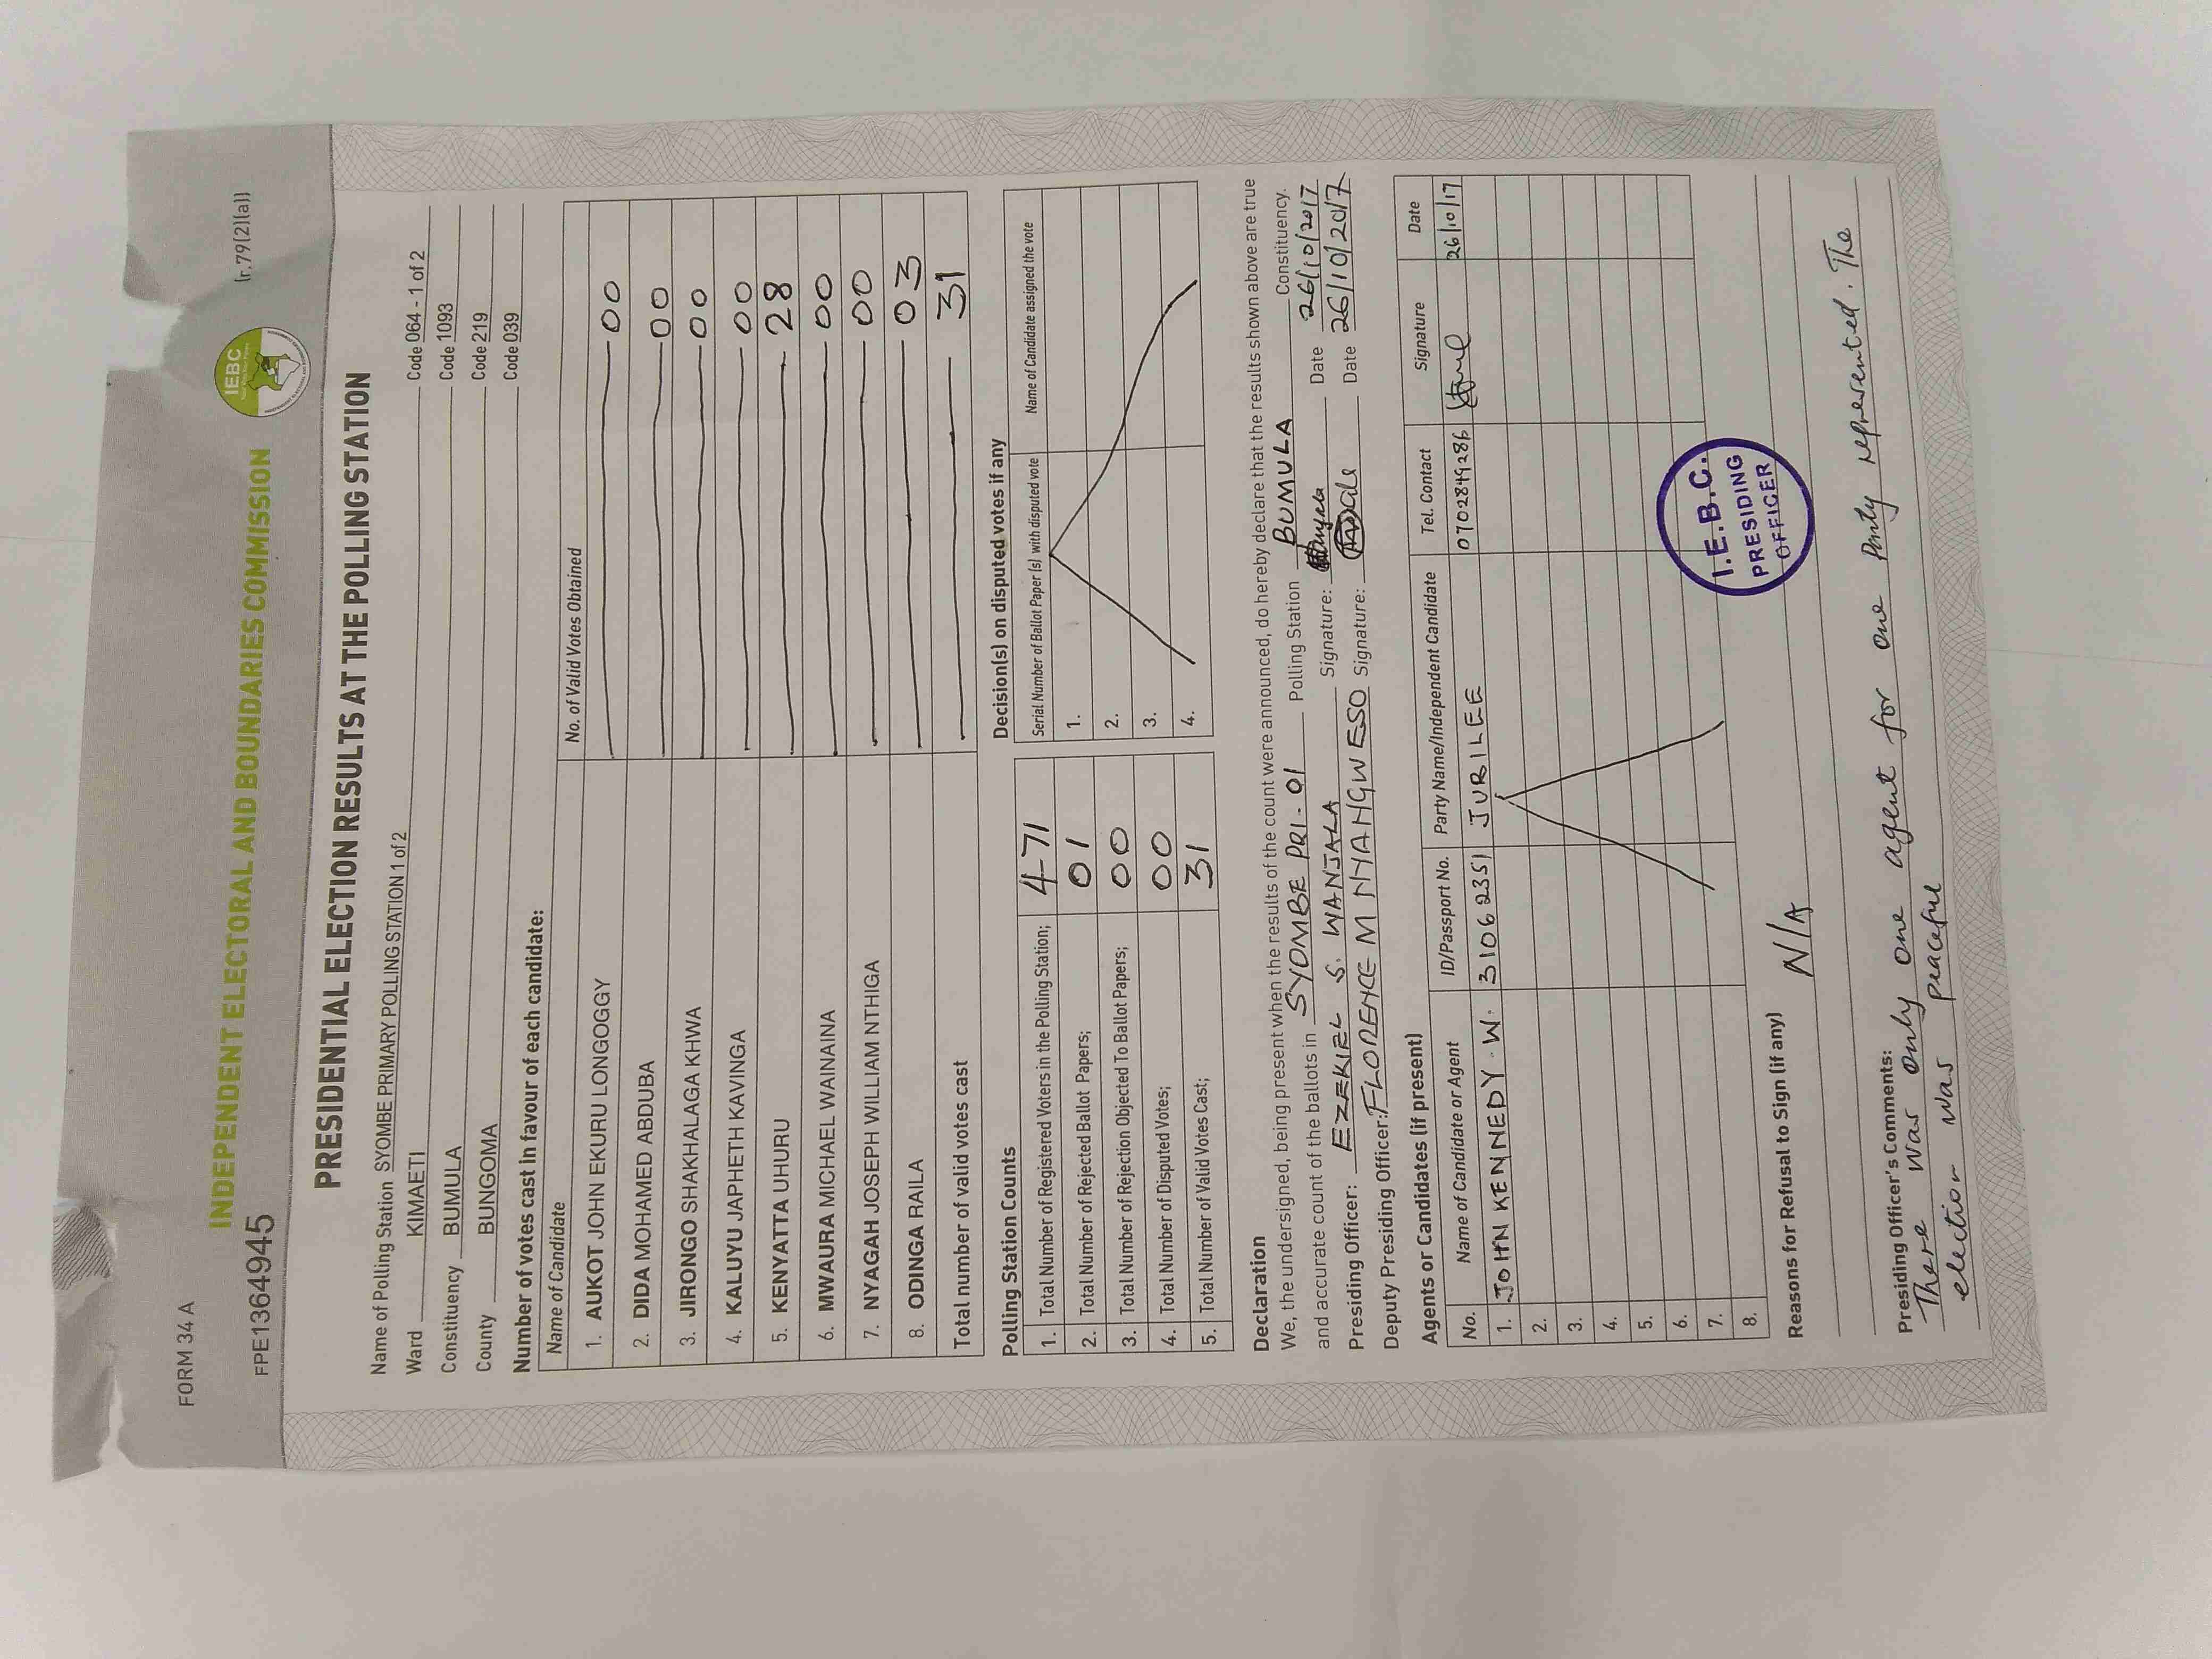 FORM 34 A
(r.79(2)(a))
INDEPENDENT ELECTORAL AND BOUNDARIES COMMISSION
IEBC
FPE1364945
PRESIDENTIAL ELECTION RESULTS AT THE POLLING STATION
Name of Polling Station SYOMBE PRIMARY POLLING STATION 1 of 2 Code 064 - 1 of 2
Ward KIMAETI Code 1093
Constituency BUMULA Code 219
County BUNGOMA Code 039
Number of votes cast in favour of each candidate:
Name of Candidate No. of Valid Votes Obtained
1. AUKOT JOHN EKURU LONGOGGY 00
2. DIDA MOHAMED ABDUBA 00
3. JIRONGO SHAKHALAGA KHWA 00
4. KALUYU JAPHETH KAVINGA 00
5. KENYATTA UHURU 28
6. MWAURA MICHAEL WAINAINA 00
7. NYAGAH JOSEPH WILLIAM NTHIGA 00
8. ODINGA RAILA 03
Total number of valid votes cast 31
Polling Station Counts
1. Total Number of Registered Voters in the Polling Station; 471
2. Total Number of Rejected Ballot Papers; 01
3. Total Number of Rejection Objected To Ballot Papers; 00
4. Total Number of Disputed Votes; 00
5. Total Number of Valid Votes Cast; 31
Decision(s) on disputed votes if any
Serial Number of Ballot Paper (s) with disputed vote Name of Candidate assigned the vote
1.
2.
3.
4.
Declaration
We, the undersigned, being present when the results of the count were announced, do hereby declare that the results shown above are true
and accurate count of the ballots in SYOMBE PRI - 01 Polling Station BUMULA Constituency.
Presiding Officer: EZEKIEL S. WANJALA Signature: Date 26/10/2017
Deputy Presiding Officer: FLORENCE M NYANGWESO Signature: Date 26/10/2017
Agents or Candidates (if present)
No. Name of Candidate or Agent ID/Passport No. Party Name/Independent Candidate Tel. Contact Signature Date
1. JOHN KENNEDY . W. 31062351 JUBILEE 0702849286 26/10/17
2.
3.
4.
5.
6.
7.
8.
I.E.B.C.
PRESIDING
OFFICER
Reasons for Refusal to Sign (if any)
N/A
Presiding Officer's Comments:
There was only one agent for one Party represented. The
election was peaceful